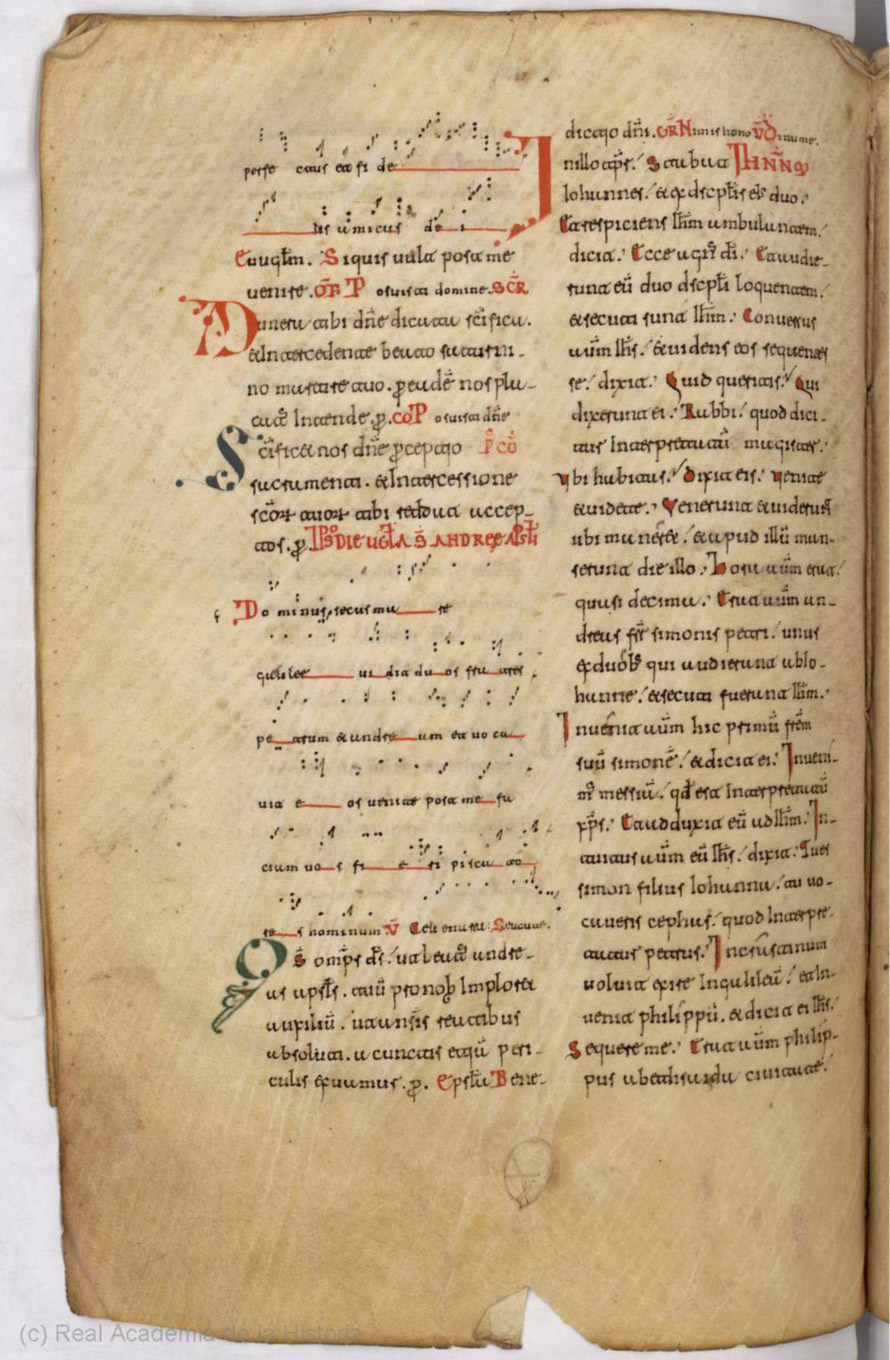 perfec tus ea fi de
tis amicus de i
Euuglm. Siquis uult post me
uenire. OF. P osuisti domine. SCR
Munera tibi dne dicata scifica.
&Intercedente beato saturni-
no martire tuo. p eadē nos pla-
catꝰ Intende. p. CO P osuisti dne
Scificet nos dne p ceptio P CO
sacramenti. &Intercessione
scōꝝ tuoꝝ tibi reddat accep-
tos. p. IN DIE UGLA S ANDREE APSTLI
Do minus secus ma re
galilee ui dit du os fra tres
pe trum & andre am et uo ca
uit e os uenite post me fa
ciam uo s fi e ri pisca to
re s hominum V Celi enarrant. Seuouae.
Qs omps ds. ut beatꝰ andre-
as apsts. tuū pro nob Imploret
auxiliū. ut a nsis reatibus
absoluti. a cunctis etiā peri-
culis exuamus. p. Epsta Bene-
dictio dni. GRN imis hono VD inuene.
nillo tps. Stabat IHNNS
Iohannes. & ex dscptis eiꝰ duo.
Et respiciens Ihm ambulantem.
dicit. Ecce agnꝰ di. Et audie-
runt eū duo dscpti loquentem.
& secuti sunt Ihm. Conuersus
autm Ihs. & uidens eos sequentes
se. dixit. Quid queritis. Qui
dixerunt ei. Rabbi. quod dici-
tur Interpretatū magister.
ubi habitas. Dixit eis. uenite
& uidete. Venerunt & uiderunt
ubi maneret. & apud illū man-
serunt die illo. Hora autm erat
quasi decima. Erat autm an-
dreas frr simonis petri. unus
ex duobꝰ qui audierunt ab Io-
hanne. & secuti fuerunt Ihm.
Inuenit autm hic primū frem
suū simonē. & dicit ei. Inueni-
mꝰ messiā. qd est Interpretatū
xps. Et adduxit eū ad Ihm. In-
tuitus autm eū Ihs. dixit. Tu es
simon filius Iohanna. tu uo-
caueris cephas. quod Interpre-
tatur petrus. In crastinum
uoluit exire In galileā. et In-
uenit philippū. & dicit ei Ihs.
Sequere me. Erat autm philip-
pus a bethsaida ciuitate.
(c) Real Academia de la Historia